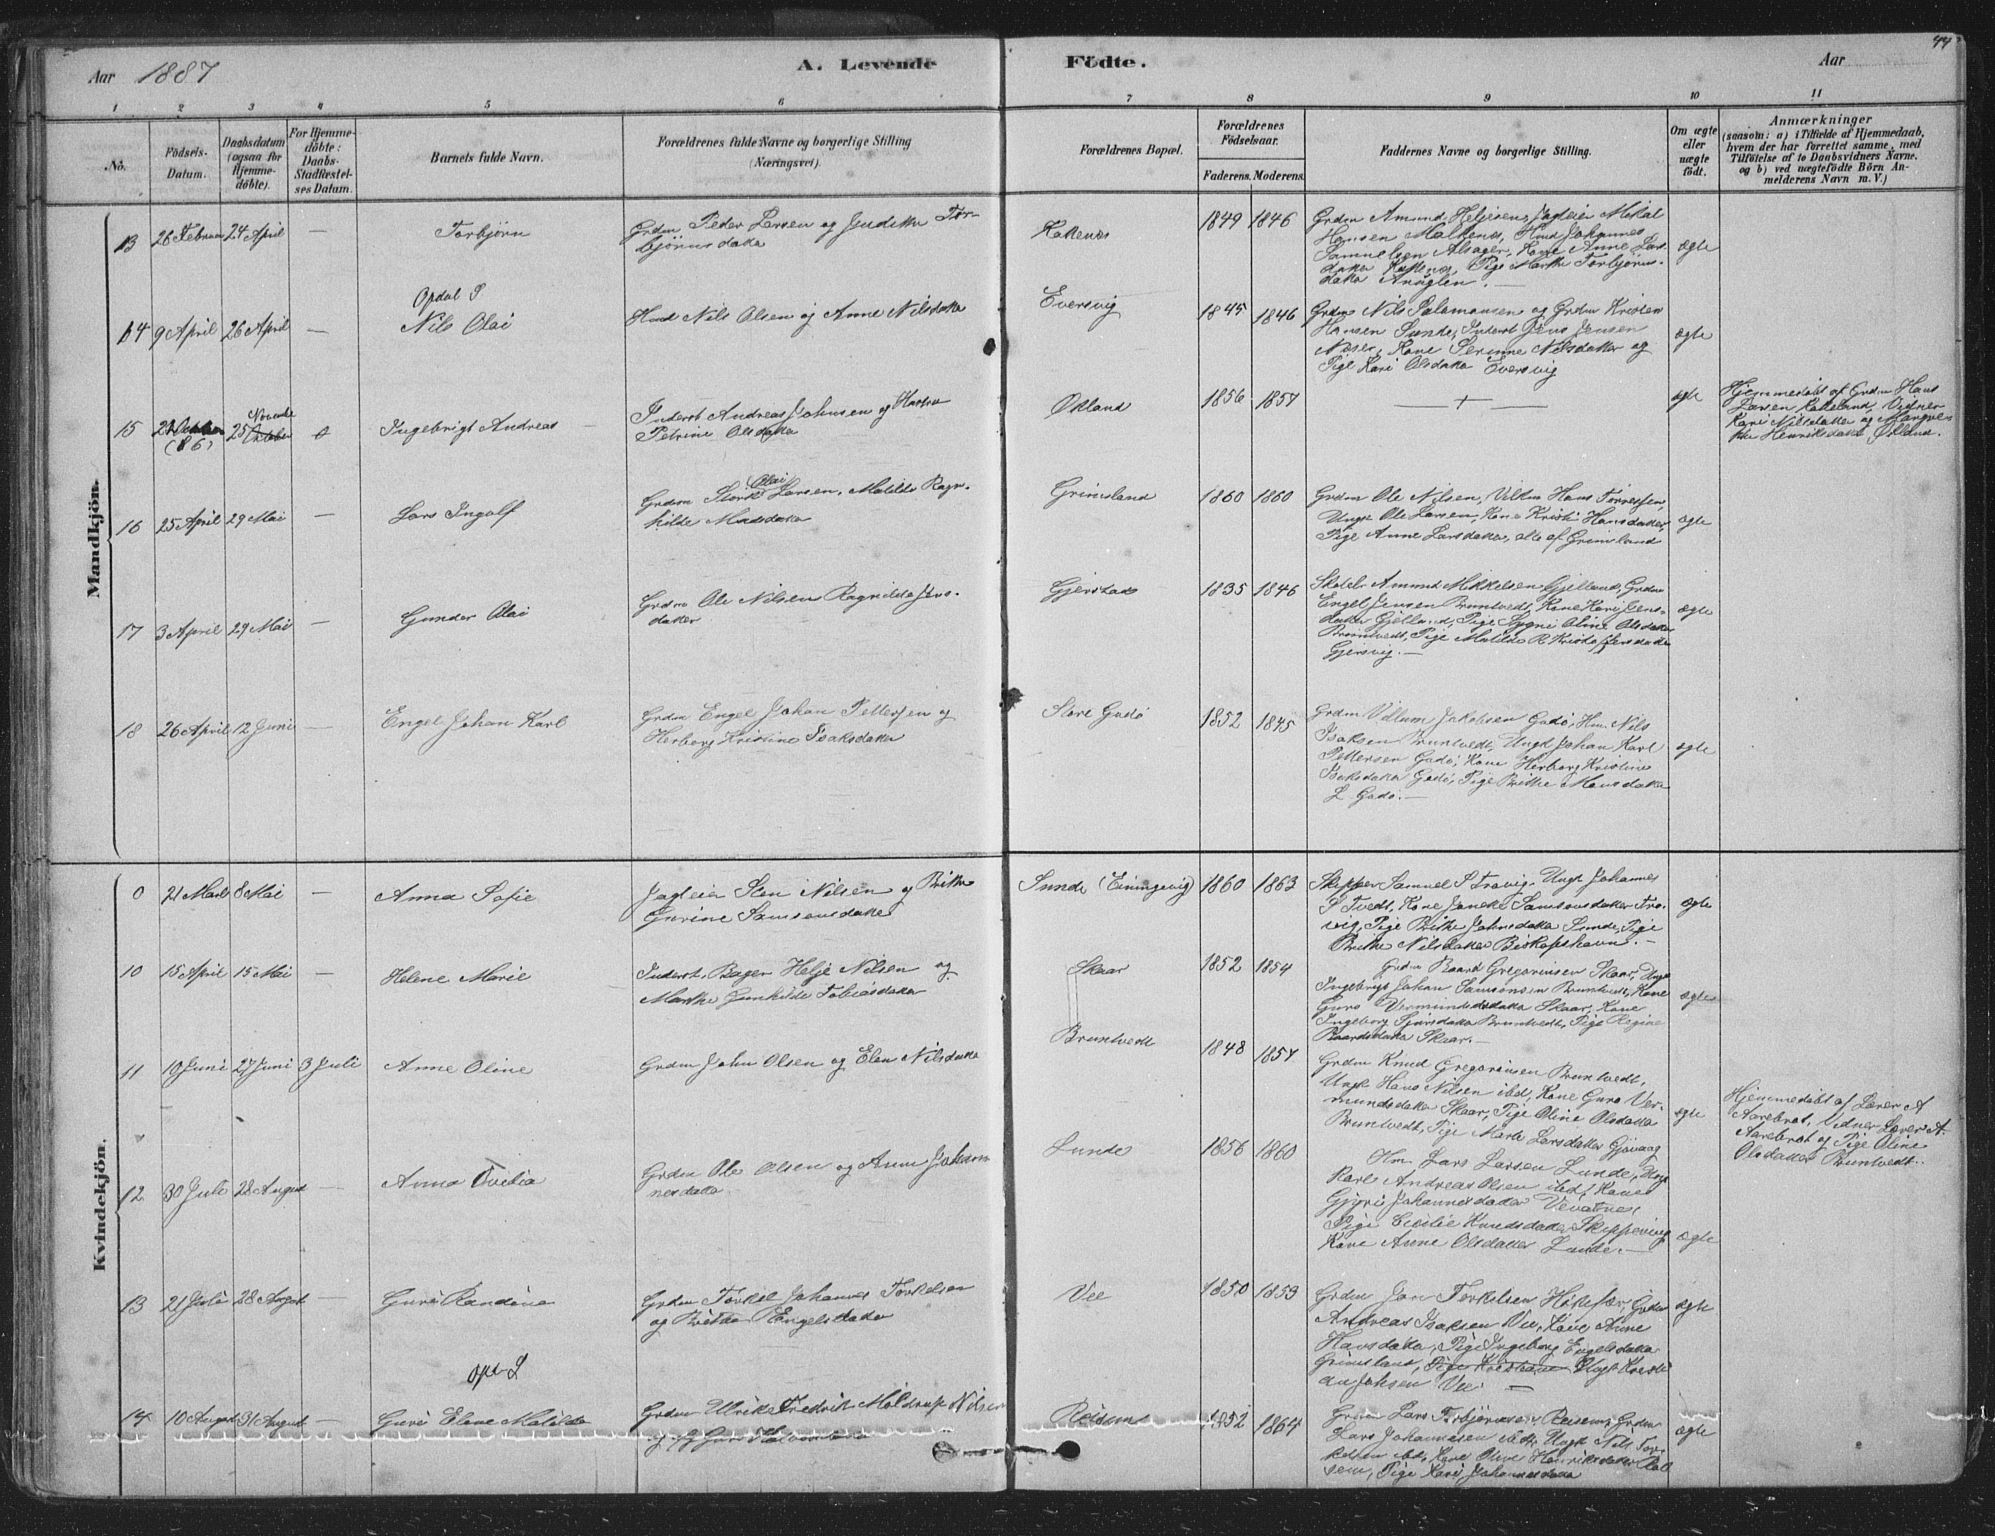 Aar 1887
A. Levende Födte.
Aar
44
1 2 3 4 5 6 7 8 9 10 11
No.
Födsels-Datum.
Daabsdatum (ogsaa for Hjemmedöbte).
For Hjemmedöbte: Daabs-Stadfæstelses Datum.
Barnets fulde Navn.
Forældrenes fulde Navne og borgerlige Stilling (Næringsvei).
Forældrenes Bopæl.
Forældrenes Födselsaar.
Faderens. Moderens.
Faddernes Navne og borgerlige Stilling.
Om ægte eller uægte födt.
Anmærkninger
(saasom: a) i Tilfælde af Hjemmedaab, hvem der har forrettet samme, med Tilföielse af to Daabsvidners Navne, og b) ved uægtefödte Börn Anmelderens Navn m. V.)
Mandkjön.
13 26 Februar 24 April — Torbjørn
Grdm Peder Larsen og Jendikke Torbjørnsdatter
1849 1846
Grdm Amund Heljesen, Jagteier Mikal
Hansen Malkenes, Hmd Johannes
Samuelsen Alsager, Kone Anne Larsdatter
Pige Marthe Torbjørnsdatter
ægte
Opdal S
14 9 April 26 April — Nils Olai
Hmd Nils Olsen og Anne Nilsdatter
Eversvig
1845 1846
Grdm Nils Salamonsen og Grdm Kristen
Hansen Sunde, Inderst Jens Jensen
Kone Serinne Nilsdatter og
Pige Kari Olsdatter Eversvig
ægte
15 (86) 25 Novembr Ingebrigt Andreas
Inderst Andreas Johnsen og
Petrine Olsdatter
Økland
1856 1857
— + —
ægte
Hjemmedøbt af Grdm Hans
Larsen Vidner
Kari Nilsdatter og
Henriksdatter Økland.
16 25 April 29 Mai — Lars Ingolf
Grdm Størk Olai Larsen, Matilde Ragnhilde Madsdatter
Grimsland
1860 1860
Grdm Ole Nilsen, Hans Torressen,
Ungk Ole Larsen, Kone Kristi Hansdatter,
Pige Anne Larsdatter, alle af Grimsland
ægte
17 3 April 29 Mai — Gunder Olai
Grdm Ole Nilsen Ragnilda Jensdatter
Gjerstad
1835 1846
Amund Mikkelsen Gjelland, Grdm
Engel Jensen Bruntvedt, Kone Kari Jensdatter
Gjelland, Pige Sygni Oline Olsdatter
Bruntvedt, Pige Matilde
Gjersvig. —
ægte
18 26 April 12 Juni — Engel Johan Karl
Grdm Engel Johan Pettersen og
Herborg Kristine Isaksdatter
Store Godø
1852 1845
Grdm Villum Jakobsen Godø, Hm Nils
Isaksen Bruntvedt, Ungk Johan Karl
Pettersen Godø, Kone Herborg Kristine
Isaksdatter Godø, Pige Brithe Monsdatter
L. Godø. —
ægte
Kvindekjön.
21 Marts 8 Mai — Anna Sofie
Jagteier Sten Nilsen og Brithe
Gurine Samsonsdatter
Sunde (Einingevig)
1860 1863
Skipper Samuel S Trovig, Ungk Johannes
S Tvedt, Kone Janeke Samsonsdatter Trovig,
Pige Brithe Johnsdatter Sunde, Pige
Brithe Nilsdatter Biskopshavn. —
ægte
10 15 April 15 Mai — Helene Marie
Inderst, Bager Helje Nilsen og
Marthe Gunhilde Tobiasdatter
Skaar
1852 1854
Grdm Baard Gregoriussen Skaar, Ungk
Johan Samsonsen Bruntvedt, Kone
Guro Vermundsdatter Skaar, Kone
Ingeborg Sjursdatter Bruntvedt, Pige Regine
Baardsdatter Skaar. —
ægte
11 10 Juni 27 Juni 3 Juli Anne Oline
Grdm John Olsen og Elen Nilsdatter
Bruntvedt
1848 1857
Grdm Knud Gregoriussen Bruntvedt,
Ungk Hans Nilsen ibd, Kone Guro Vermundsdatter
Skaar, Pige Oline Olsdatter
Bruntvedt, Pige Marte Larsdatter Gjøvaag
ægte
Hjemmedøbt af Lærer A
Aarebrot, Vidner Lærer A.
Aarebrot og Pige Oline
Olsdatter Bruntvedt.
12 30 Juli 28 August — Anna Ovidia
Grdm Ole Olsen og Anne Johannesdatter
Lunde
1856 1860
Hm Lars Larsen Lunde, Ungk
Karl Andreas Olsen ibd, Kone
Gjyri Johannesdatter Vevatne,
Pige Cecilie Knudsdatter Skippevig
Kone Anne Olsdatter Lunde. —
ægte
13 21 Juli 28 August — Guri Randine
Grdm Torkel Johannes Torkelsen
og Britha Engelsdatter
Vee
1850 1859
Grdm Jan Torkelsen Grdm
Andreas Isaksen Vee, Kone Anne
Hansdatter, Pige Ingeborg Engelsdatter
Grimsland, Ungk
Johsen Vee —
ægte
Opd L
14 10 August 31 August — Guri Elene Matilda
Grdm Ulrik Fredrik Moldrup Nilsen
og Guro Halvorsdatter
Reisem
1852 1864
Grdm Lars Torbjørnsen Reisem, Grdm
Lars Johannesen ibd, Ungk Nils Torkelsen
ibd, Kone Oline Henriksdatter
Pige Kari Johannesdatter
ægte